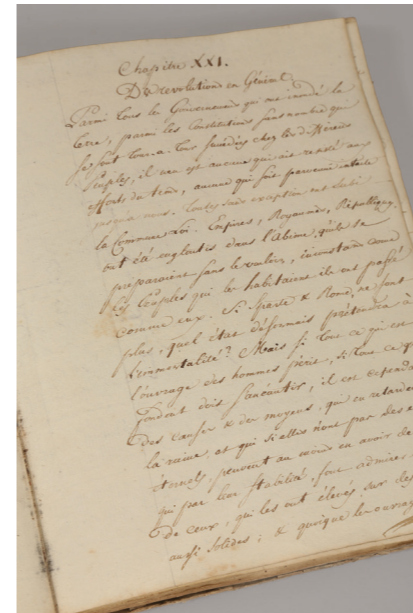 Chapitre XXI.
Des revolutions en Général
Parmi tous les Gouvernements qui ont inondé la
terre, parmi les Constitutions sans nombre qui
se sont tour-a-tour succedées chez les différens
Peuples, il n'en est aucune qui ait resisté aux
efforts du tems, aucune qui soit parvenue intacte
jusqu'a nous. Toutes sans exception ont subi
la Commune Loi. Empires, Royaumes, Républiques,
ont été engloutis dans l'Abime, qu'ils se
préparoient sans le vouloir, inconstans comme
les Peuples qui les habitaient ils ont passé
comme eux. Si Sparte & Rome, ne sont
plus, quel état désormais prétendra à
l'immortalité? Mais si tout ce qui est
l'ouvrage des hommes périt, si tout ce qu
fondent doit s'anéantir, il est cependa
Des causes & des moyens, qui en retarden
la ruine, et qui si elles n'ont pas des
éternels peuvent au moins en avoir de
qui par leur stabilité font admirer
De ceux, qui les ont élevés sur des
aussi solides; & quoique les ouvrag